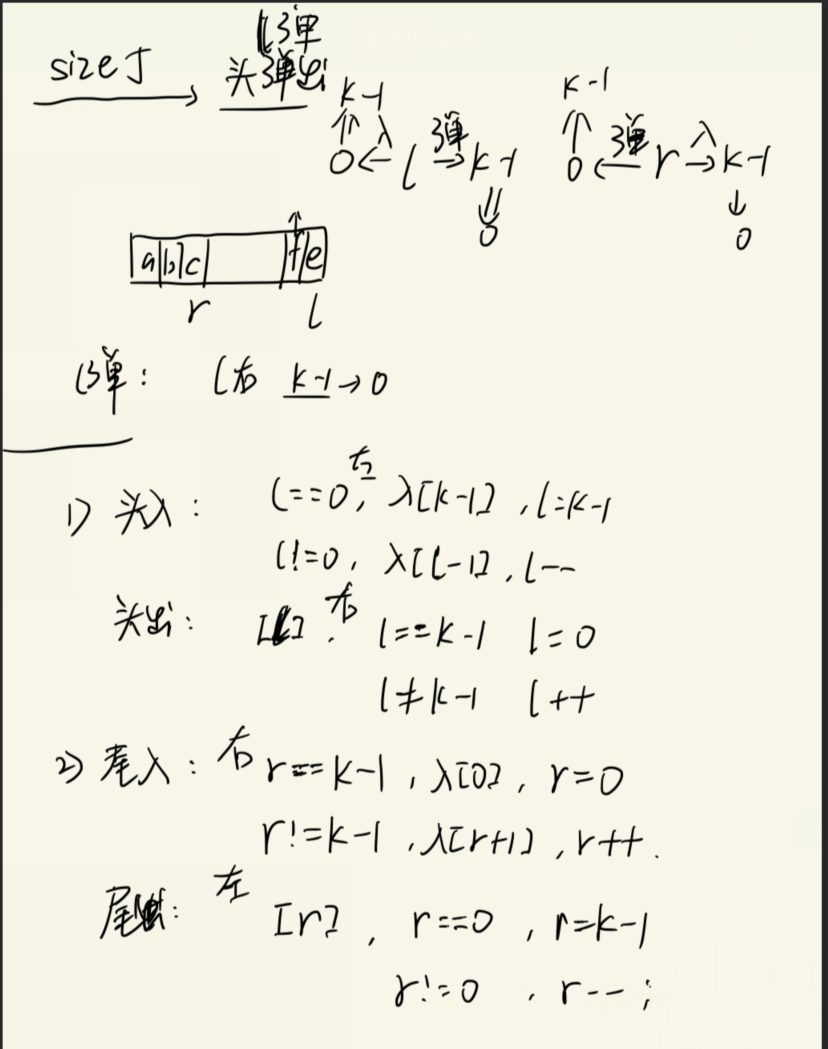 l弹
size于 → 头弹出
k-1 k-1
⇑ 入 弹 ⇑ 弹 入
0 ← l → k-1 0 ← r → k-1
⇓ ↓
0 0
a|b|c| |f|e
r l
l弹: l右 k-1 → 0
1) 头入: l==0, 左 入[k-1], l=k-1
l!=0, 入[l-1], l--
头出: [l]. 右 l==k-1 l=0
l≠k-1 l++
2) 尾入: 右 r==k-1, 入[0], r=0
r!=k-1, 入[r+1], r++.
尾出: 左 [r], r==0, r=k-1
r!=0, r--;